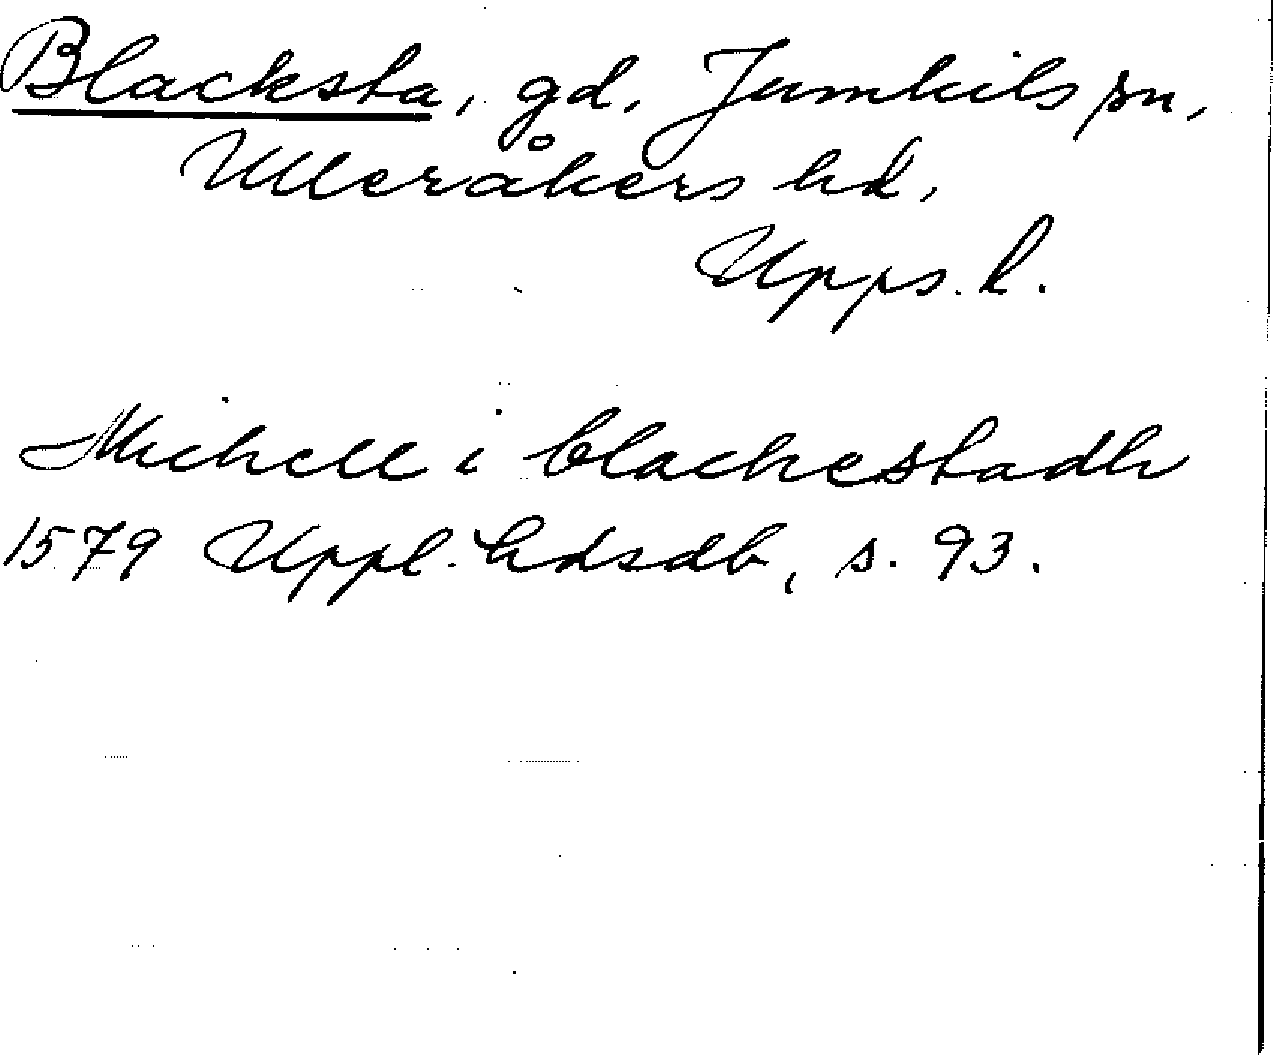 Blacksta, gd, Jumkils sn,
Ulleråkers hd,
Upps. l.
Michell i blachestadh
1579 Uppl. hdsdb, s. 93.